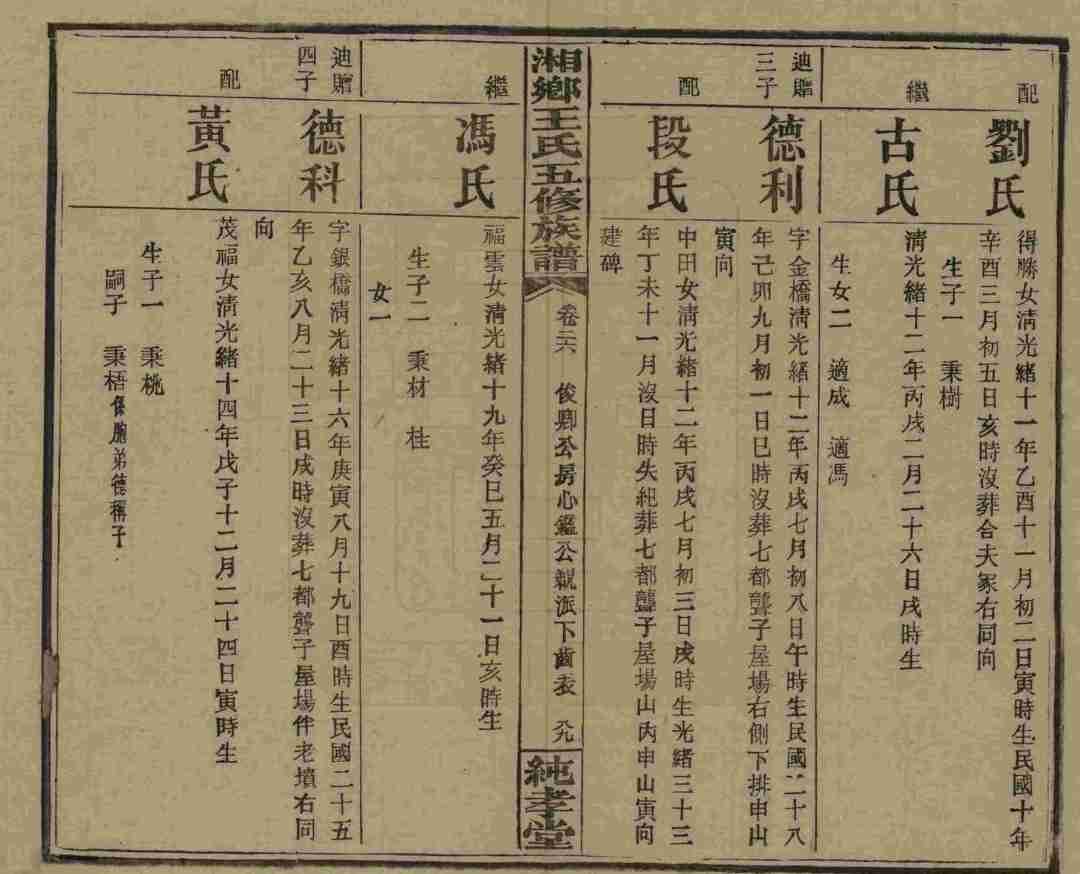 配
劉氏
得勝女清光緒十一年乙酉十一月初二日寅時生民國十年
辛酉三月初五日亥時沒葬合夫冢右同向
生子一 秉樹
繼
古氏
清光緒十二年丙戌二月二十六日戌時生
生女二 適成 適馮
迪賵
三子
德利
字金橋清光緒十二年丙戌七月初八日午時生民國二十八
年己卯九月初一日巳時沒葬七都聾子屋場右側下排申山
寅向
配
段氏
中田女清光緒十二年丙戌七月初三日戌時生光緒三十三
年丁未十一月沒日時失紀葬七都聾子屋場山內申山寅向
建碑
湘鄉王氏五修族譜
卷三六 俊卿公房心鑑公親派下齒表 九九
純孝堂
繼
馮氏
福雲女清光緒十九年癸巳五月二十一日亥時生
生子二 秉材 桂
女一
迪賵
四子
德科
字銀橋清光緒十六年庚寅八月十九日酉時生民國二十五
年乙亥八月二十三日戌時沒葬七都聾子屋場伴老墳右同
向
配
黃氏
茂福女清光緒十四年戊子十二月二十四日寅時生
生子一 秉桃
嗣子 秉梧係胞弟德稱子